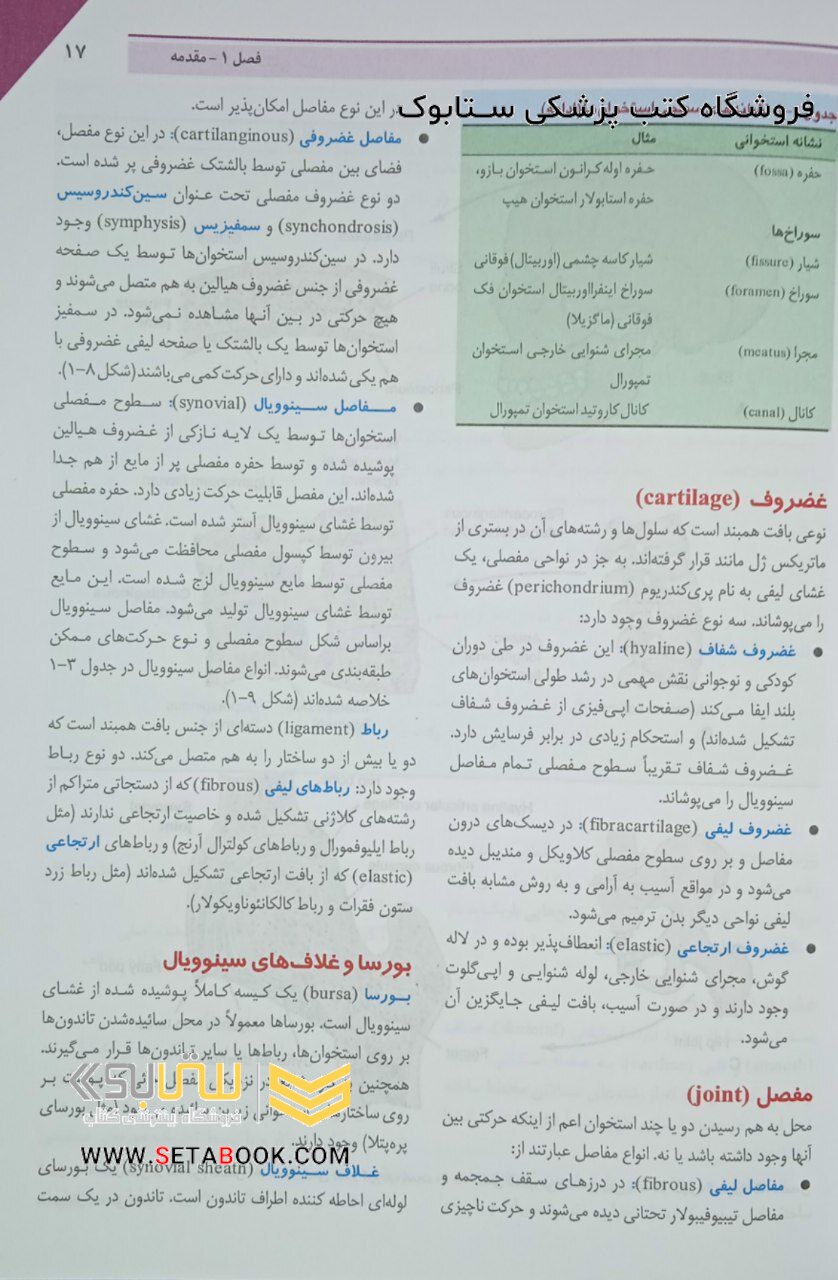 ۱۷
فصل ۱ - مقدمه
فروشگاه کتب پزشکی ستابوک
نشانه استخوانی مثال
حفره (fossa) حفره اوله کرانون استخوان بازو،
حفره استابولار استخوان هیپ
سوراخ‌ها
شیار (fissure) شیار کاسه چشمی (اوربیتال) فوقانی
سوراخ (foramen) سوراخ اینفرااوربیتال استخوان فک
فوقانی (ماگزیلا)
مجرا (meatus) مجرای شنوایی خارجی استخوان
تمپورال
کانال (canal) کانال کاروتید استخوان تمپورال
غضروف (cartilage)
نوعی بافت همبند است که سلول‌ها و رشته‌های آن در بستری از
ماتریکس ژل مانند قرار گرفته‌اند. به جز در نواحی مفصلی، یک
غشای لیفی به نام پری‌کندریوم (perichondrium) غضروف
را می‌پوشاند. سه نوع غضروف وجود دارد:
● غضروف شفاف (hyaline): این غضروف در طی دوران
کودکی و نوجوانی نقش مهمی در رشد طولی استخوان‌های
بلند ایفا می‌کند (صفحات اپی‌فیزی از غضروف شفاف
تشکیل شده‌اند) و استحکام زیادی در برابر فرسایش دارد.
غضروف شفاف تقریباً سطوح مفصلی تمام مفاصل
سینوویال را می‌پوشاند.
● غضروف لیفی (fibracartilage): در دیسک‌های درون
مفاصل و بر روی سطوح مفصلی کلاویکل و مندیبل دیده
می‌شود و در مواقع آسیب به آرامی و به روش مشابه بافت
لیفی نواحی دیگر بدن ترمیم می‌شود.
● غضروف ارتجاعی (elastic): انعطاف‌پذیر بوده و در لاله
گوش، مجرای شنوایی خارجی، لوله شنوایی و اپی‌گلوت
وجود دارند و در صورت آسیب، بافت لیفی جایگزین آن
می‌شود.
مفصل (joint)
محل به هم رسیدن دو یا چند استخوان اعم از اینکه حرکتی بین
آنها وجود داشته باشد یا نه. انواع مفاصل عبارتند از:
● مفاصل لیفی (fibrous): در درزهای سقف جمجمه و
مفاصل تیبیوفیبولار تحتانی دیده می‌شوند و حرکت ناچیزی
در این نوع مفاصل امکان‌پذیر است.
● مفاصل غضروفی (cartilanginous): در این نوع مفصل،
فضای بین مفصلی توسط بالشتک غضروفی پر شده است.
دو نوع غضروف مفصلی تحت عنوان سین‌کندروسیس
(synchondrosis) و سمفیزیس (symphysis) وجود
دارد. در سین‌کندروسیس استخوان‌ها توسط یک صفحه
غضروفی از جنس غضروف هیالین به هم متصل می‌شوند و
هیچ حرکتی در بین آنها مشاهده نمی‌شود. در سمفیز
استخوان‌ها توسط یک بالشتک یا صفحه لیفی غضروفی با
هم یکی شده‌اند و دارای حرکت کمی می‌باشند (شکل ۸-۱).
● مفاصل سینوویال (synovial): سطوح مفصلی
استخوان‌ها توسط یک لایه نازکی از غضروف هیالین
پوشیده شده و توسط حفره مفصلی پر از مایع از هم جدا
شده‌اند. این مفصل قابلیت حرکت زیادی دارد. حفره مفصلی
توسط غشای سینوویال آستر شده است. غشای سینوویال از
بیرون توسط کپسول مفصلی محافظت می‌شود و سطوح
مفصلی توسط مایع سینوویال لزج شده است. این مایع
توسط غشای سینوویال تولید می‌شود. مفاصل سینوویال
براساس شکل سطوح مفصلی و نوع حرکت‌های ممکن
طبقه‌بندی می‌شوند. انواع مفاصل سینوویال در جدول ۳-۱
خلاصه شده‌اند (شکل ۹-۱).
رباط (ligament) دسته‌ای از جنس بافت همبند است که
دو یا بیش از دو ساختار را به هم متصل می‌کند. دو نوع رباط
وجود دارد: رباط‌های لیفی (fibrous) که از دستجاتی متراکم از
رشته‌های کلاژنی تشکیل شده و خاصیت ارتجاعی ندارند (مثل
رباط ایلیوفمورال و رباط‌های کولترال آرنج) و رباط‌های ارتجاعی
(elastic) که از بافت ارتجاعی تشکیل شده‌اند (مثل رباط زرد
ستون فقرات و رباط کالکانئوناویکولار).
بورسا و غلاف‌های سینوویال
بورسا (bursa) یک کیسه کاملاً پوشیده شده از غشای
سینوویال است. بورساها معمولاً در محل سائیده‌شدن تاندون‌ها
بر روی استخوان‌ها، رباط‌ها یا سایر تاندون‌ها قرار می‌گیرند.
همچنین در نزدیکی مفصل پوست بر
روی زیرین سائیده می‌شود (مثل بورسای
پره‌پتلا) وجود دارند.
ستابوک
فروشگاه اینترنتی کتاب
WWW.SETABOOK.COM
غلاف سینوویال (synovial sheath) یک بورسای
لوله‌ای احاطه کننده اطراف تاندون است. تاندون در یک سمت